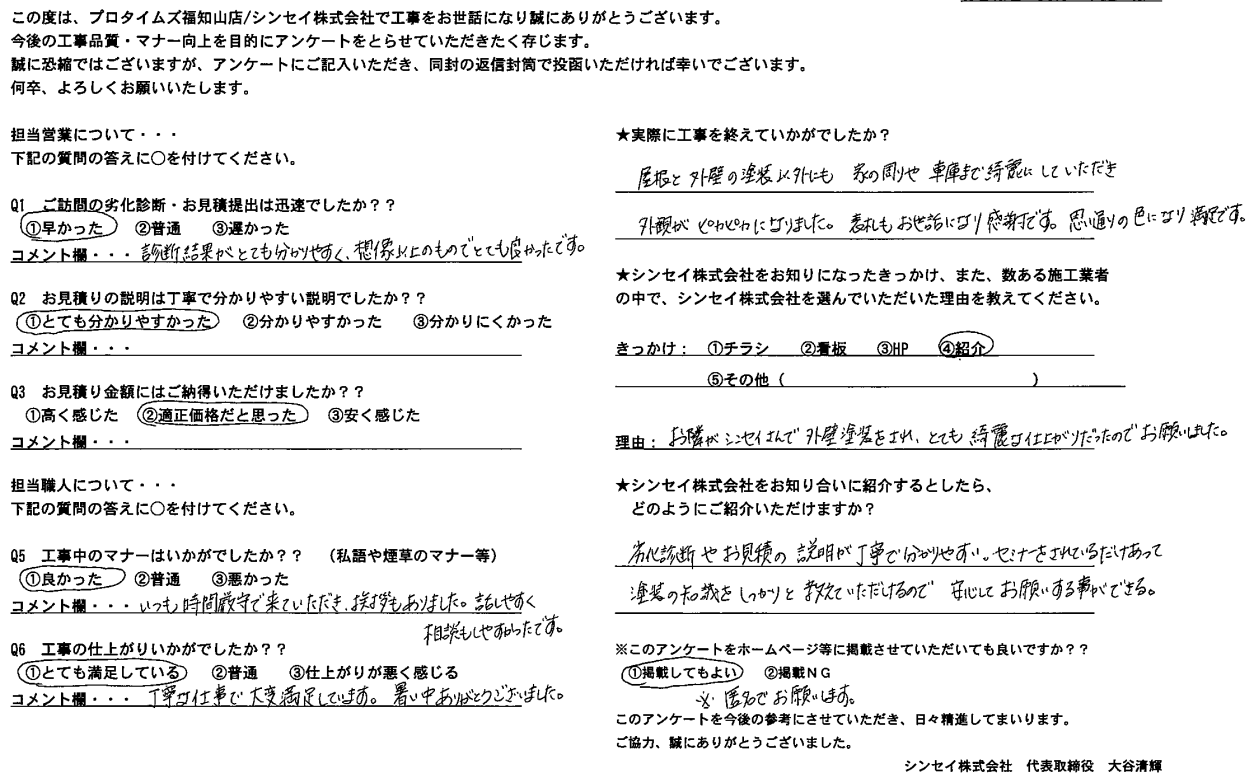 この度は、プロタイムズ福知山店/シンセイ株式会社で工事をお世話になり誠にありがとうございます。
今後の工事品質・マナー向上を目的にアンケートをとらせていただきたく存じます。
誠に恐縮ではございますが、アンケートにご記入いただき、同封の返信封筒で投函いただければ幸いでございます。
何卒、よろしくお願いいたします。
担当営業について・・・
下記の質問の答えに○を付けてください。
Q1 ご訪問の劣化診断・お見積提出は迅速でしたか？？
①早かった ②普通 ③遅かった
コメント欄・・・ 診断結果がとても分かりやすく、想像以上のものでとても良かったです。
Q2 お見積りの説明は丁寧で分かりやすい説明でしたか？？
①とても分かりやすかった ②分かりやすかった ③分かりにくかった
コメント欄・・・
Q3 お見積り金額にはご納得いただけましたか？？
①高く感じた ②適正価格だと思った ③安く感じた
コメント欄・・・
担当職人について・・・
下記の質問の答えに○を付けてください。
Q5 工事中のマナーはいかがでしたか？？ （私語や煙草のマナー等）
①良かった ②普通 ③悪かった
コメント欄・・・ いつも時間厳守で来ていただき、挨拶もありました。話しやすく
相談もしやすかったです。
Q6 工事の仕上がりいかがでしたか？？
①とても満足している ②普通 ③仕上がりが悪く感じる
コメント欄・・・ 丁寧な仕事で大変満足しています。暑い中ありがとうございました。
★実際に工事を終えていかがでしたか？
屋根と外壁の塗装以外にも 家の周りや車庫まで綺麗にしていただき
外観がピカピカになりました。表札もお世話になり感謝です。思い通りの色になり満足です。
★シンセイ株式会社をお知りになったきっかけ、また、数ある施工業者
の中で、シンセイ株式会社を選んでいただいた理由を教えてください。
きっかけ： ①チラシ ②看板 ③HP ④紹介
⑤その他（ ）
理由： お隣がシンセイさんで外壁塗装をされ、とても綺麗な仕上がりだったのでお願いしました。
★シンセイ株式会社をお知り合いに紹介するとしたら、
どのようにご紹介いただけますか？
劣化診断やお見積の説明が丁寧で分かりやすい。セミナーをされているだけあって
塗装の知識をしっかりと教えていただけるので安心してお願いする事ができる。
※このアンケートをホームページ等に掲載させていただいても良いですか？？
①掲載してもよい ②掲載ＮＧ
※匿名でお願いします。
このアンケートを今後の参考にさせていただき、日々精進してまいります。
ご協力、誠にありがとうございました。
シンセイ株式会社 代表取締役 大谷清輝